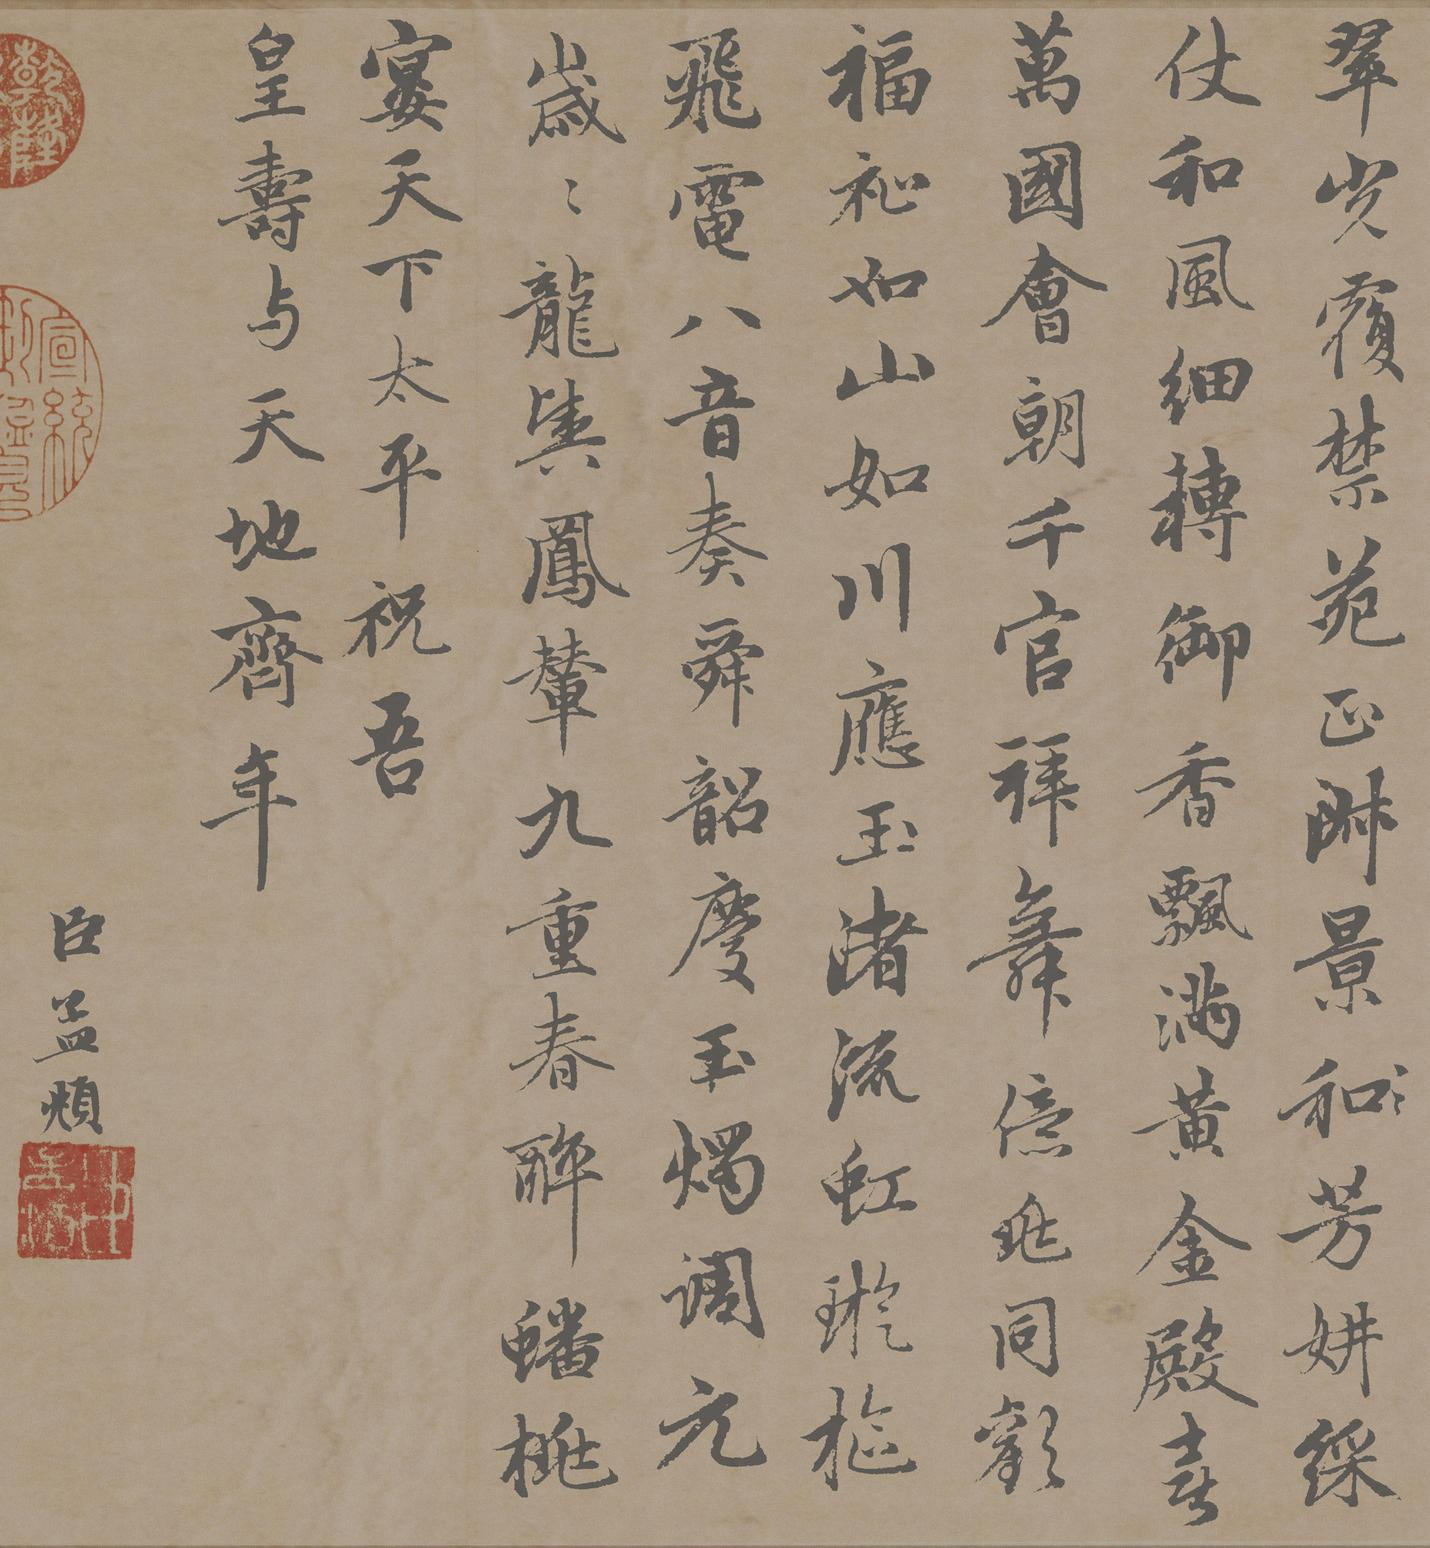 翠光覆禁苑正淑景和芳妍綵
仗和風細轉御香飄滿黃金殿喜
萬國會朝千官拜舞億兆同歡
福祉如山如川應玉渚流虹璇樞
飛電八音奏舜韶慶玉燭調元
歲〻龍輿鳳輦九重春醉蟠桃
宴天下太平祝吾
皇壽与天地齊年
臣孟頫
乾隆
宣統